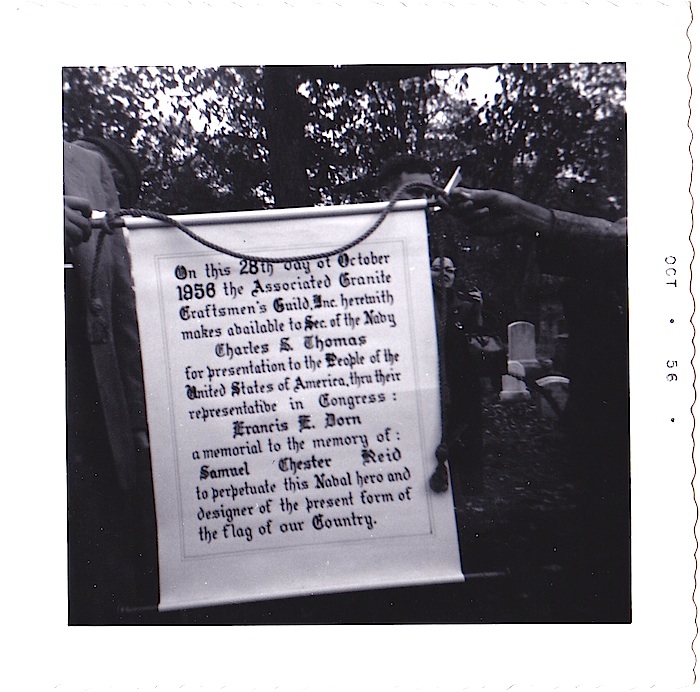 On this 28th day of October
1956 the Associated Granite
Craftsmen's Guild, Inc. herewith
makes available to Sec. of the Navy
Charles S. Thomas
for presentation to the People of the
United States of America, thru their
representative in Congress :
Francis E. Dorn
a memorial to the memory of :
Samuel Chester Reid
to perpetuate this Naval hero and
designer of the present form of
the flag of our Country.
OCT • 56 •